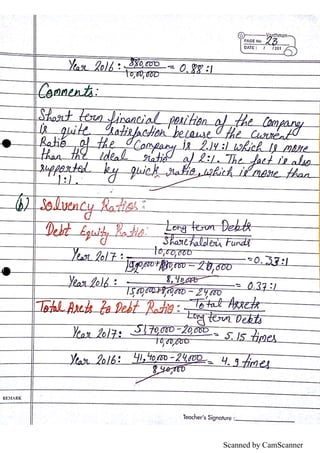 PAGE No. 23
DATE: / /201
Year 2016: 880,000 / 10,00,000 = 0.88:1
Comments:
Short term financial position of the Company
is quite satisfaction because the current
Ratio of the Company is 2.14:1 which is more
than the ideal ratio of 2:1. The fact is also
supported by quick ratio, which is more than
1:1.
(b) Solvency Ratios:
Debt Equity Ratio: Long term Debts / Shareholders Funds
Year 2017: 10,00,000 / = 0.33:1
Year 2016: 8,40,000 / = 0.37:1
Total Assets to Debt Ratio: Total Assets / Long term Debts
Year 2017: 51,70,000 - 20,000 / 10,00,000 = 5.15 times
Year 2016: 41,40,000 - 24,000 / 8,40,000 = 4.9 times
REMARK
Teacher's Signature:
Scanned by CamScanner